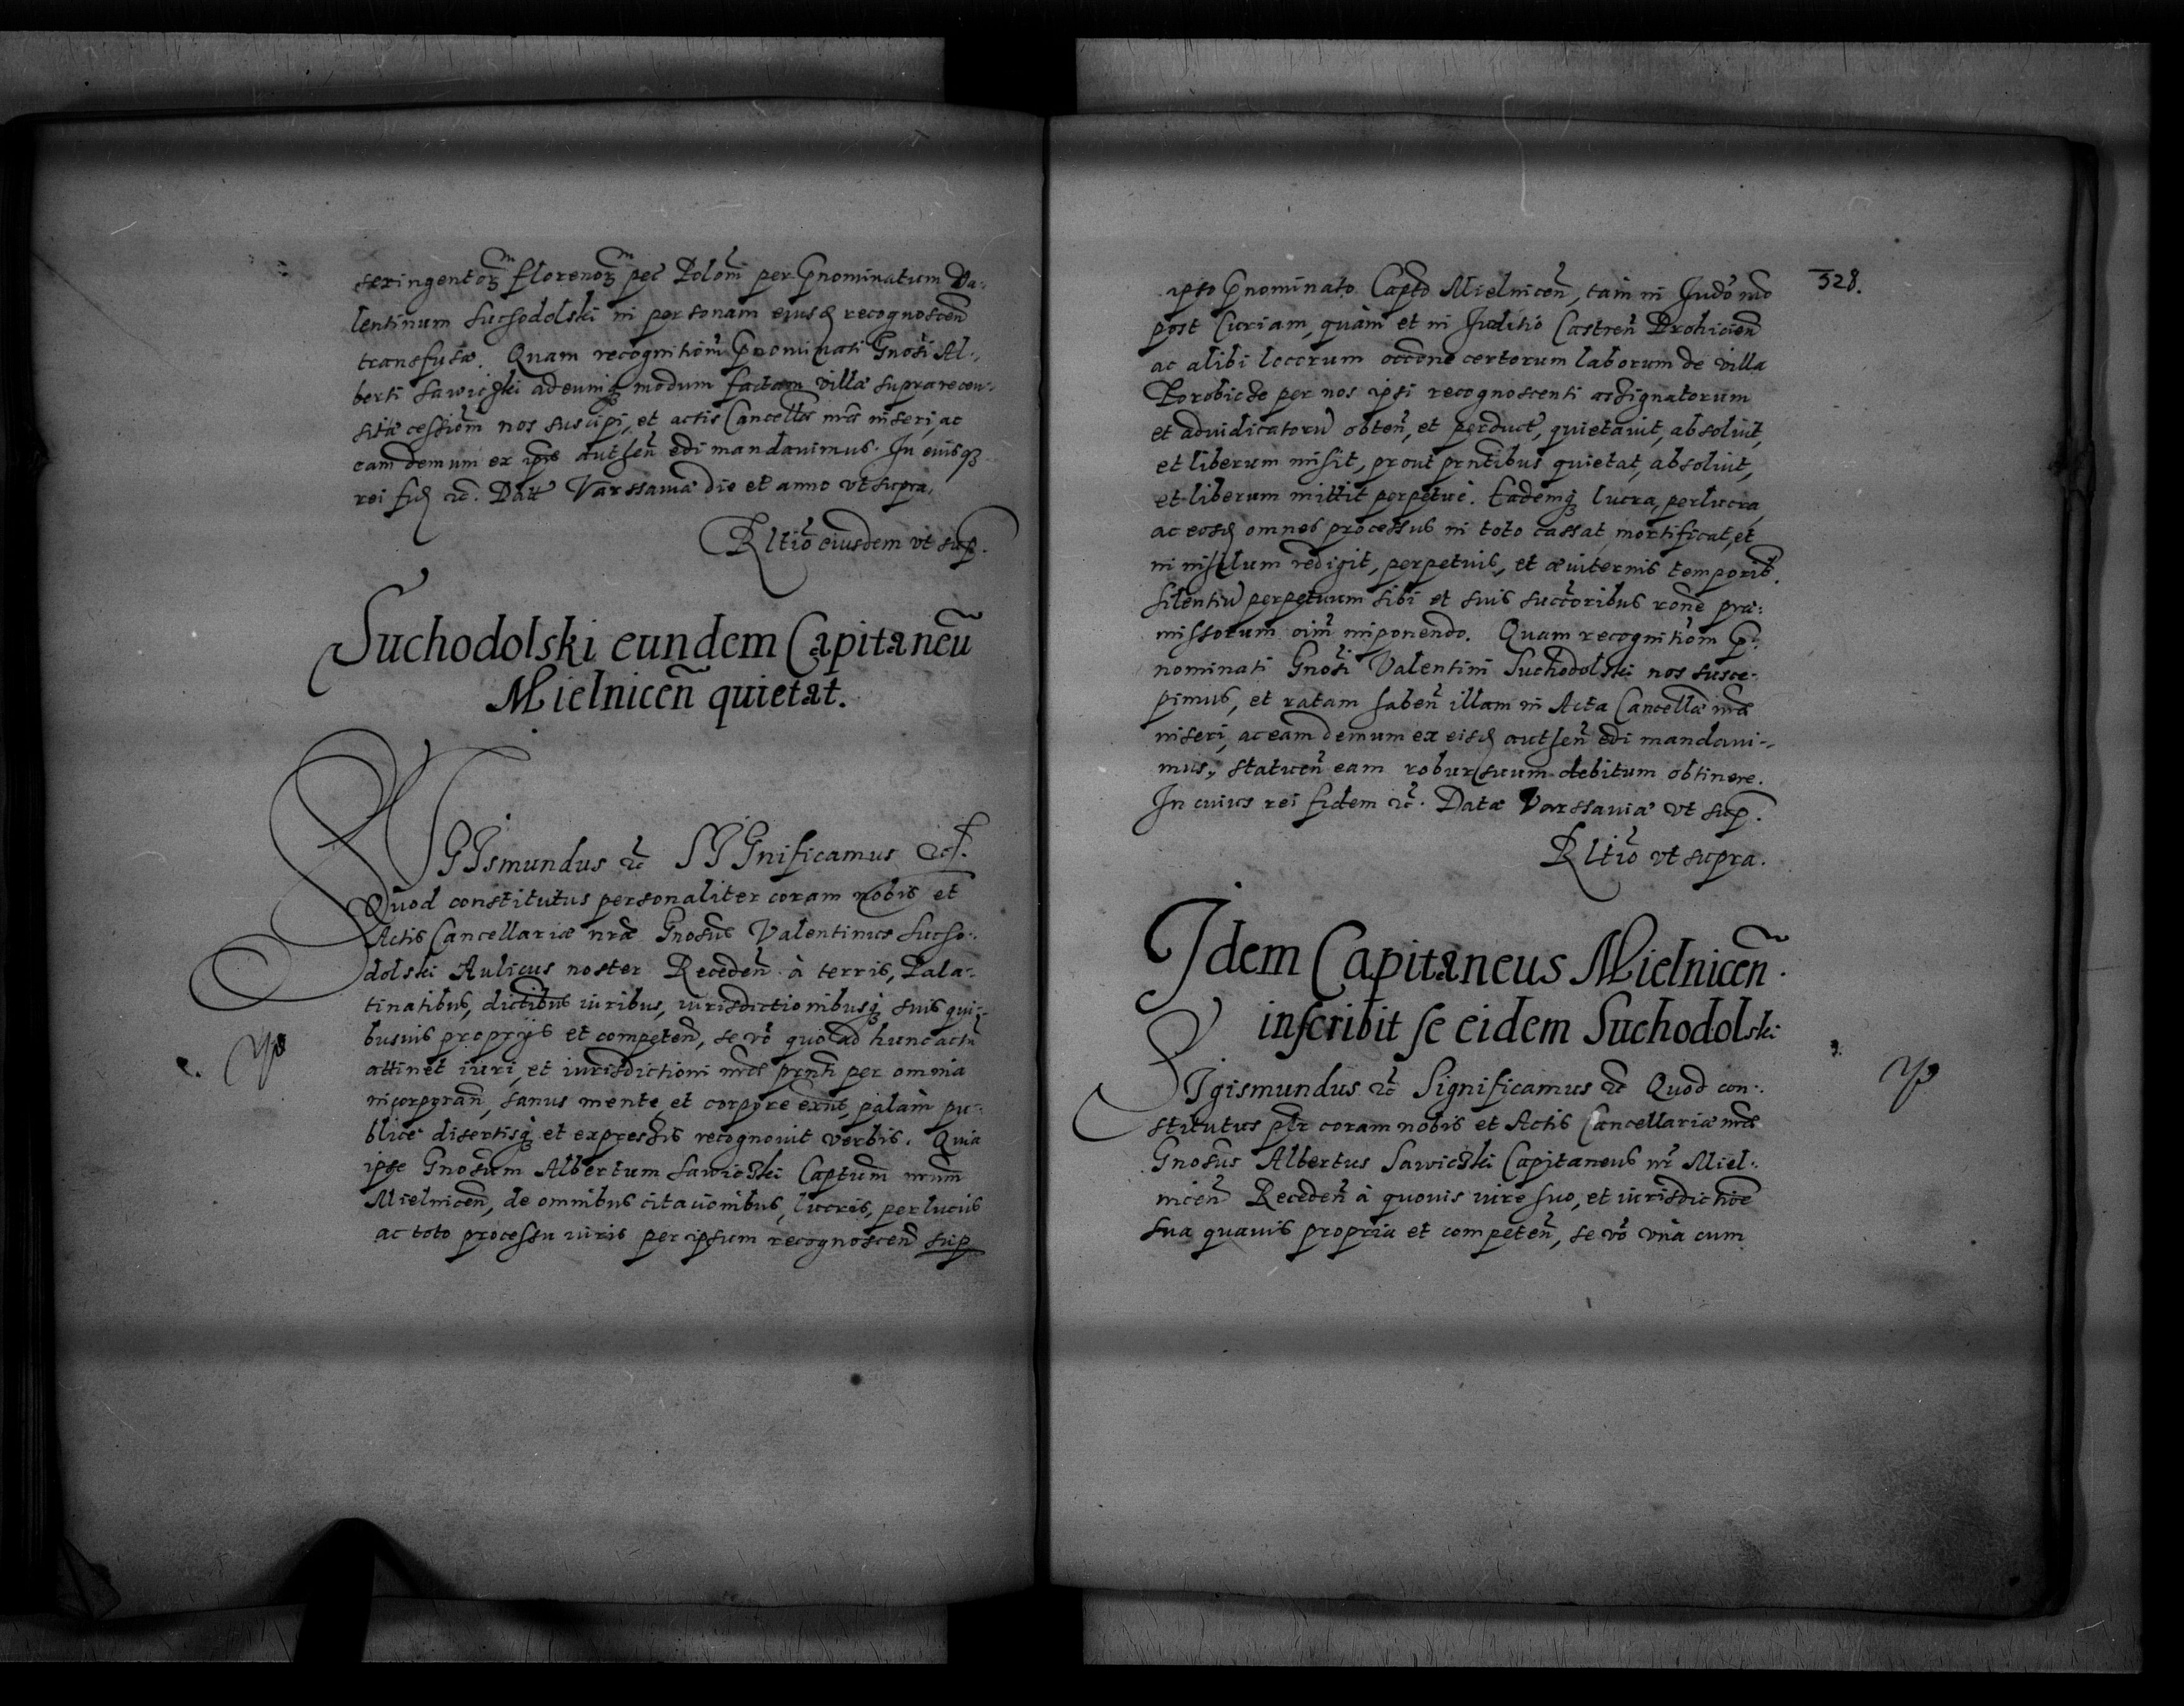 sexingentorum florenorum pec Poloni per pnominatum Va-
lentinum Suchodolski in personam eiusd recognoscen
transfusæ. Quam recognitiom pnominati Gnosi Al-
berti Sawiczki ad eumq modum factam villæ suprarecen-
sitæ cessiom nos suscipi, et actis Cancellæ nræ inseri, ac
eam demum ex ipsis authen edi mandavimus. In cuius
rei fid &c. Datt Varssaviæ die et anno vt supra.
Rltio eiusdem vt sup.
Suchodolski eundem Capitaneu
Mielnicen quietat.
SIGIsmundus &c SIGnificamus &c.
Quod constitutus personaliter coram nobis et
Actis Cancellariæ nræ Gnosus Valentinus Sucho-
dolski Aulicus noster Receden à terris, Pala-
tinatibus, dictibus iuribus, iurisdictionibusq suis qui-
busuis proprijs et competen, se vo quoad hunc actu
attinet iuri, et iurisdictioni nræ prnti per omnia
incorporan, sanus mente et corpore exnt, palàm pu-
blicè disertisq et expressis recognovit verbis. Quia
ipse Gnosum Albertum Sawiczki Captum nrum
Mielnicen, de omnibus citationibus, lucris, perlucris
ac toto processu iuris per ipsum recognoscen sup
328.
ipso pnominato Capto Mielnicen, tam in Judo nro
post Curiam, quàm et in Juditio Castren Drohicien
ac alibi locorum occone certorum laborum de villa
Porobicze per nos ipsi recognoscenti assignatorum
et adiudicatoru obten, et perduct, quietauit, absoluit,
et liberum misit, prout prntibus quietat, absoluit,
et liberum mittit perpetuè. Eademq lucra, perlucra,
ac eosd omnes processus in toto cassat, mortificat, et
in nihilum redigit, perpetuis, et æuiternis temporib.
Silentiu perpetuum sibi et suis succoribus rone præ-
missorum oim imponendo. Quam recognitiom p-
nominati Gnosi Valentini Suchodolski nos susce-
pimus, et ratam haben illam in Acta Cancellæ nræ
inseri, ac eam demum ex eisd authen edi mandaui-
mus, statuen eam robur suum debitum obtinere.
In cuius rei fidem &c. Datæ Varssauiæ vt sup.
Rltio vt supra.
Idem Capitaneus Mielnicen.
inscribit se eidem Suchodolski
SIgismundus &c Significamus &c Quod con-
stitutus plr coram nobis et Actis Cancellariæ nræ
Gnosus Albertus Sawiczki Capitaneus nr Miel-
nicen Receden à quouis iure suo, et iurisdictioe
sua quauis propria et competen, se vo vnà cum